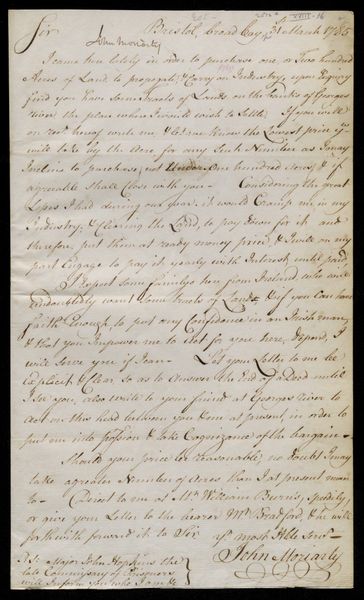 Sir
Bristol, broad bay 31st March 1785
John Moriarty
I came here lately in order to purchase one, or Two hundred
Acres of Land, to propogate & Carry on Industry, upon Enquiry
find you have Some tracts of Lands on the banks of Georges
river the place where I would wish to Settle; If you will
on rect hereof write me, & let me know the Lowest price yu
will take by the Acre for any Such Number as I may
Incline to purchase, not Under One hundred acres, & if
agreeable Shall Close with you - Considering the great
Loses I had during our years, it would Cramp me in my
Industry, & Clearing the Land, to pay down for it and
therefore put them at ready money price, & I write on my
part Engage to pay it yearly with Interest until paid
I Expect some familys here from Ireland, who will
undoubtedly want Some tracts of Land, & if you Can have
faith Enough, to put any Confidence in an Irish man,
& that you Impower me to Act for you here, Depend, I
will Serve you if I can - Let your Letter to me be
Explicit & Clear So as to Answer the End of a Deed until
I See you, also write to your friend at Georges river to
Act on this head between you & me at present, in order to
put me into possesion & take Cognizance of the bargain -
Should your price be reasonable, no doubt I may
take a greater Number of Acres than I at present mean
to - Direct to me at Mr William Burns, speedily
or give your Letter to the bearer Mr Bradford, & he will
forthwith forward it to Sir yr most Hble Servt
John Moriarty
P.S. Major John Hopkins the
late Commissary of
will Inform you who I am &c